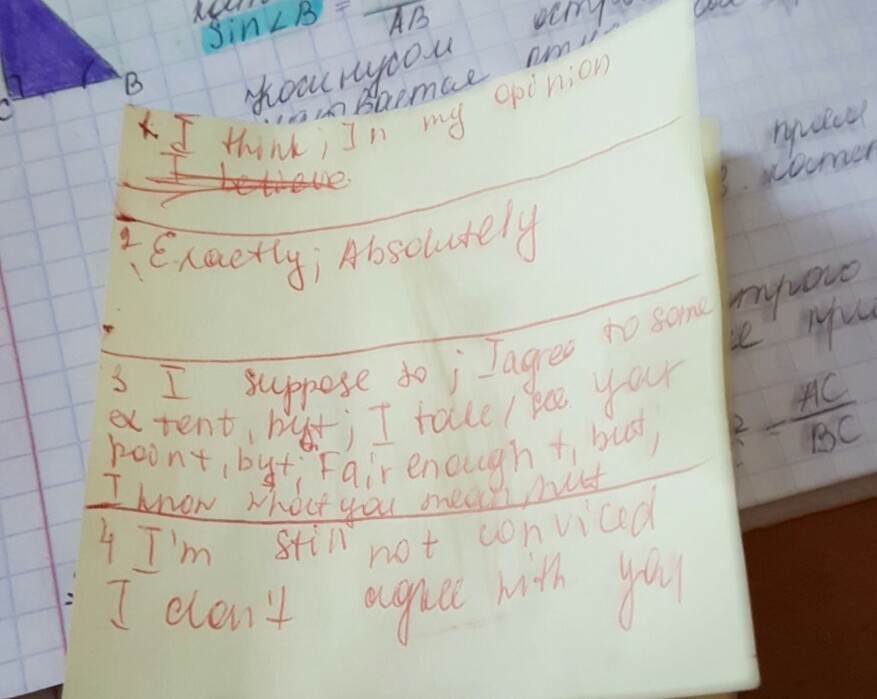 sin∠B =
AB
B
C
косинусом
1. I think; In my opinion
I believe
2. Exactly; Absolutely
3 I suppose so; I agree to some
extent, byt; I take / see your
point, byt; Fair enough t, but;
I know what you mean, but
4 I'm still not conviced
I don't agree with you
AC
BC